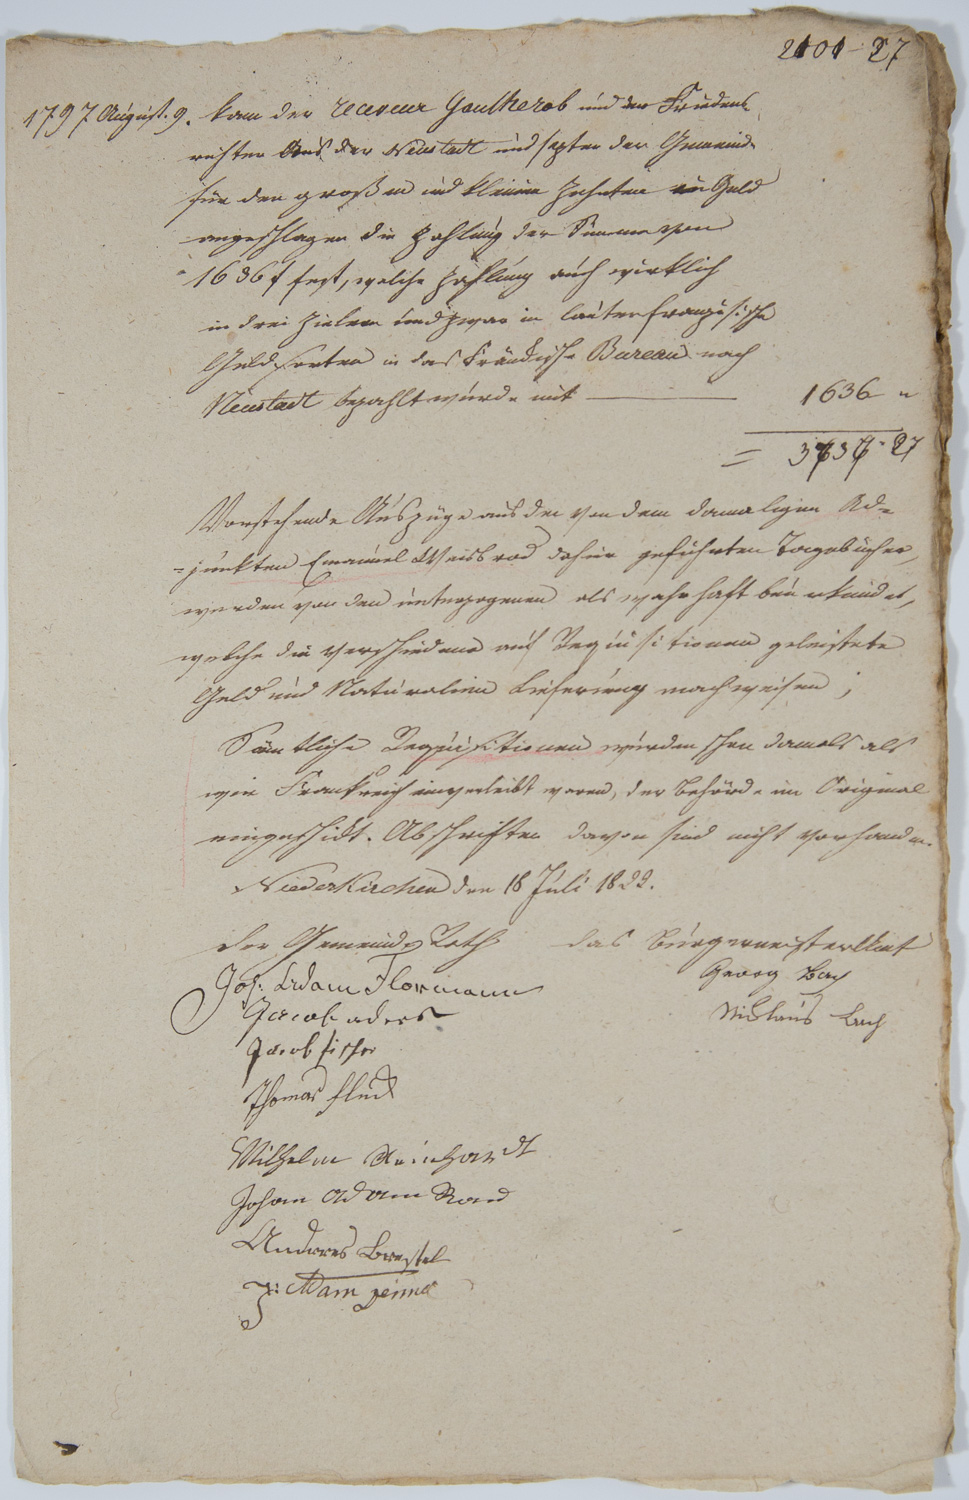 2101 - 27
1797 August. 9. kam der receveur Gautherob und der Friedens
richter Aus der Neustadt und sezten der Gemeinde
für den großen und kleinen Zehnten in Geld
angeschlagen die Zahlung der Summe von
1636 f fest, welche Zahlung auch wirklich
in drei Zielern und zwar in lauter französische
Geldsorten in das Fränkische Bureau nach
Neustadt bezahlt wurde mit 1636 "
= 3737 - 27
Vorstehende Auszüge aus den von dem damaligen Ad=
=junkten Emanuel Weisbrod dahier geführten Tagebücher,
werden von den unterzogenen als wahrhaft beurkundet,
welche die verschiedene auf Requisitionen geleistete
Geld und Naturalien Lieferung nachweisen;
Sämtliche Requisitionen wurden schon damals als
wir Frankreich einverleibt waren, der Behörde im Original
eingeschikt. Abschriften davon sind nicht vorhanden.
Niederkirchen den 18 Juli 1822.
der Gemeinde Rath das Bürgermeisteramt
Joh: Adam Flormann Georg Bach
Jacob aders Niklaus Bach
Jacob fischer
Thomas
Wilhelm Reinhardt
Johan Adam
Andreas Brestel
J: Adam